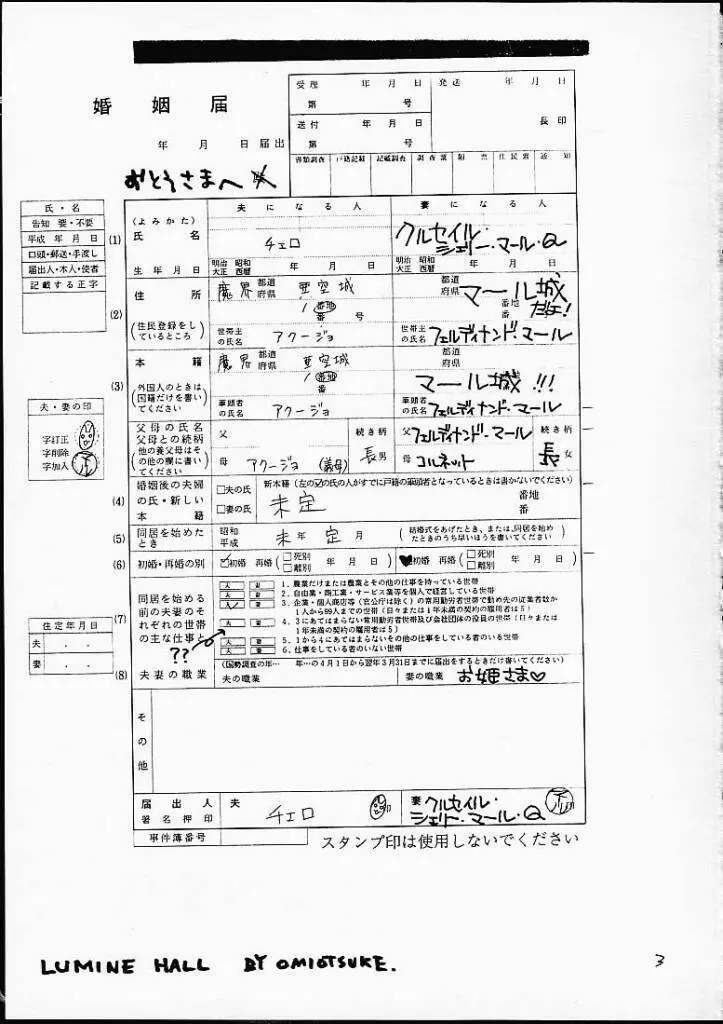 婚姻届
年 月 日届出
おとうさまへ
受理 年 月 日
第 号
発送 年 月 日
送付 年 月 日
第 号
長印
書類調査 戸籍記載 記載調査 調査票 附票 住民票 通知
氏・名
告知 要・不要
平成 年 月 日
口頭・郵送・手渡し
届出人・本人・使者
記載する正字
夫になる人 妻になる人
(1)
(よみかた)
氏名
チェロ
クルセイル・
シェリー・マール・Q
生年月日
明治 昭和
大正 西暦
年 月 日
明治 昭和
大正 西暦
年 月 日
(2)
住所
(住民登録をし
ているところ)
魔界 都道
府県 亜空城
1 番地
番 号
都道
府県 マール城
番地
号
だよ!
世帯主
の氏名 アクージョ
世帯主
の氏名 フェルディナンド・マール
(3)
本籍
外国人のときは
国籍だけを書い
てください
魔界 都道
府県 亜空城
1 番地
番
都道
府県
マール城!!!
筆頭者
の氏名 アクージョ
筆頭者
の氏名 フェルディナンド・マール
夫・妻の印
字訂正
字削除
字加入
父母の氏名
父母との続柄
他の養父母はそ
の他の欄に書い
てください
父
続き柄
母 アクージョ (義母)
長男
父 フェルディナンド・マール
続き柄
母 コルネット
長女
(4)
婚姻後の夫婦
の氏・新しい
本籍
□夫の氏
□妻の氏
新本籍(左の☑の氏の人がすでに戸籍の筆頭者となっているときは書かないでください)
未定
番地
番
(5)
同居を始めた
とき
昭和
平成 未年 定月
(結婚式をあげたとき、または、同居を始め
たときのうち早いほうを書いてください)
(6)
初婚・再婚の別
☑初婚 再婚(□死別
□離別 年 月 日)
♥初婚 再婚(□死別
□離別 年 月 日)
(7)
同居を始める
前の夫妻のそ
れぞれの世帯
の主な仕事と
??
夫 妻 1.農業だけまたは農業とその他の仕事を持っている世帯
夫 妻 2.自由業・商工業・サービス業等を個人で経営している世帯
夫 妻 3.企業・個人商店等(官公庁は除く)の常用勤労者世帯で勤め先の従業者数が
1人から99人までの世帯(日々または1年未満の契約の雇用者は5)
夫 妻 4.3にあてはまらない常用勤労者世帯及び会社団体の役員の世帯(日々または
1年未満の契約の雇用者は5)
夫 妻 5.1から4にあてはまらないその他の仕事をしている者のいる世帯
夫 妻 6.仕事をしている者のいない世帯
住定年月日
夫 . .
妻 . .
(8)
夫妻の職業
(国勢調査の年… 年…の4月1日から翌年3月31日までに届出をするときだけ書いてください)
夫の職業
妻の職業 お姫さま♡
その他
届出人
署名押印
夫 チェロ 印
妻 クルセイル・
シェリー・マール・Q 印
事件簿番号
スタンプ印は使用しないでください
LUMINE HALL BY OMIOTSUKE.
3